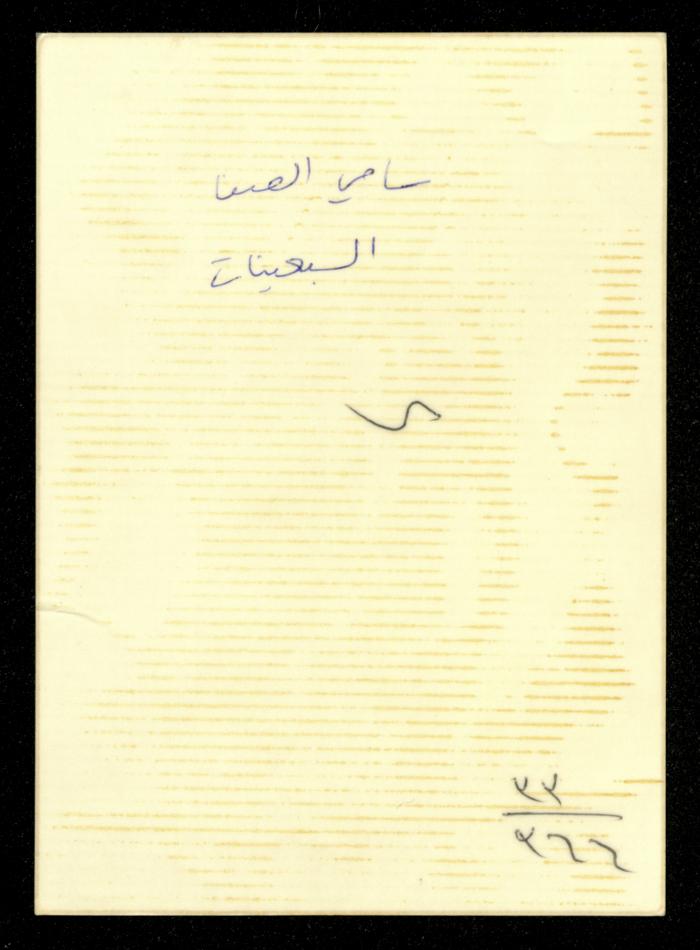 سامي الصفا
السبعينات
٢٢
٩٦٦